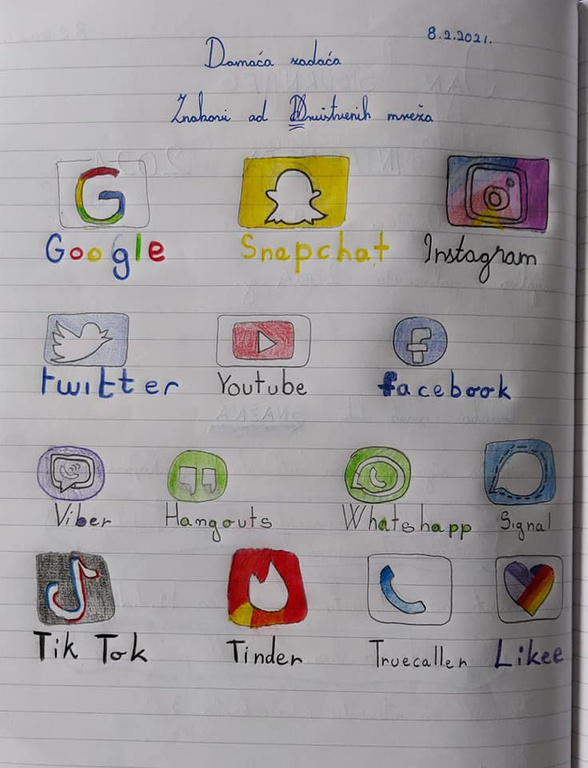 8.2.2021.
Domaća zadaća
Znakovi od Društvenih mreža
Google Snapchat Instagram
twitter Youtube facebook
Viber Hangouts Whatshapp Signal
Tik Tok Tinder Truecaller Likee